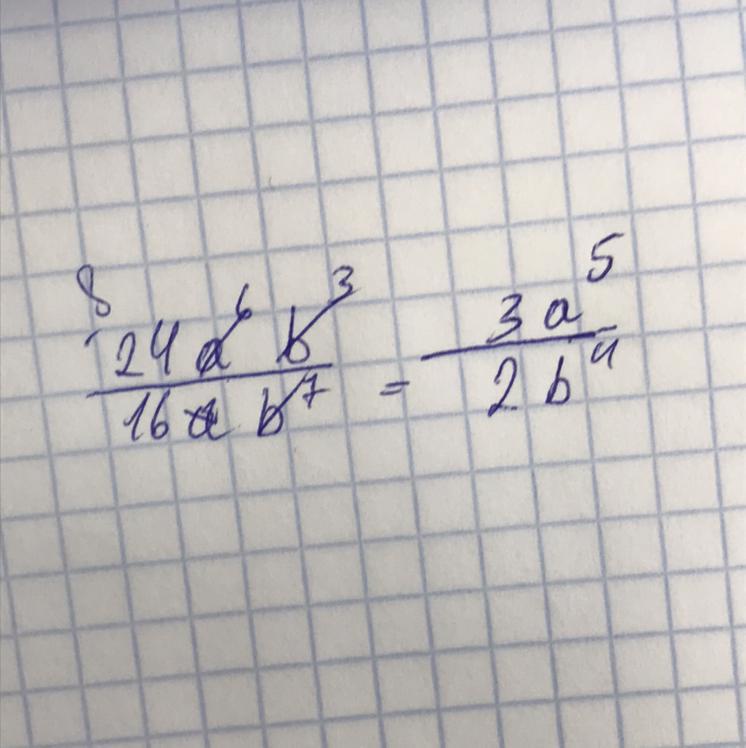 8
24a⁶ b³ / 16a b⁷ = 3a⁵ / 2b⁴